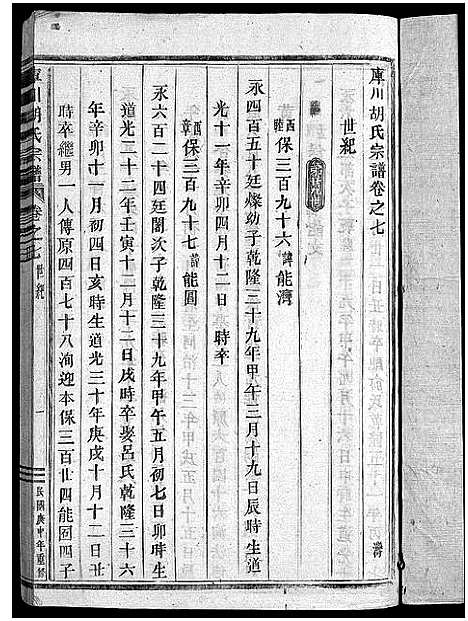 庫川胡氏宗譜卷之七
世紀
西陸保三百九十六諱能濟
永四百五十廷燦幼子乾隆三十九年甲午三月十九日辰時生道
光十一年辛卯十二月十二日 時卒
西章保三百九十七諱能圓
永六百二十四廷閣次子乾隆三十九年甲午五月初七日卯時生
道光二十二年壬寅十二月十二日戌時卒娶呂氏乾隆三十六
年辛卯十一月初四日亥時生道光三十年庚戌十月十二日丑
時卒繼男一人傳原四百七十八洵迎本保三百廿四能囿四子
庫川胡氏宗譜 卷之七 世紀 一 民國庚申年重修